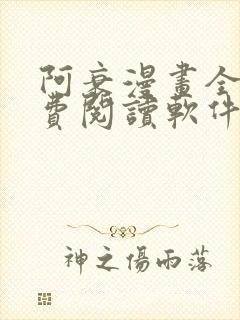 阿衰漫畫全
費閱讀軟件
神之傷雨落